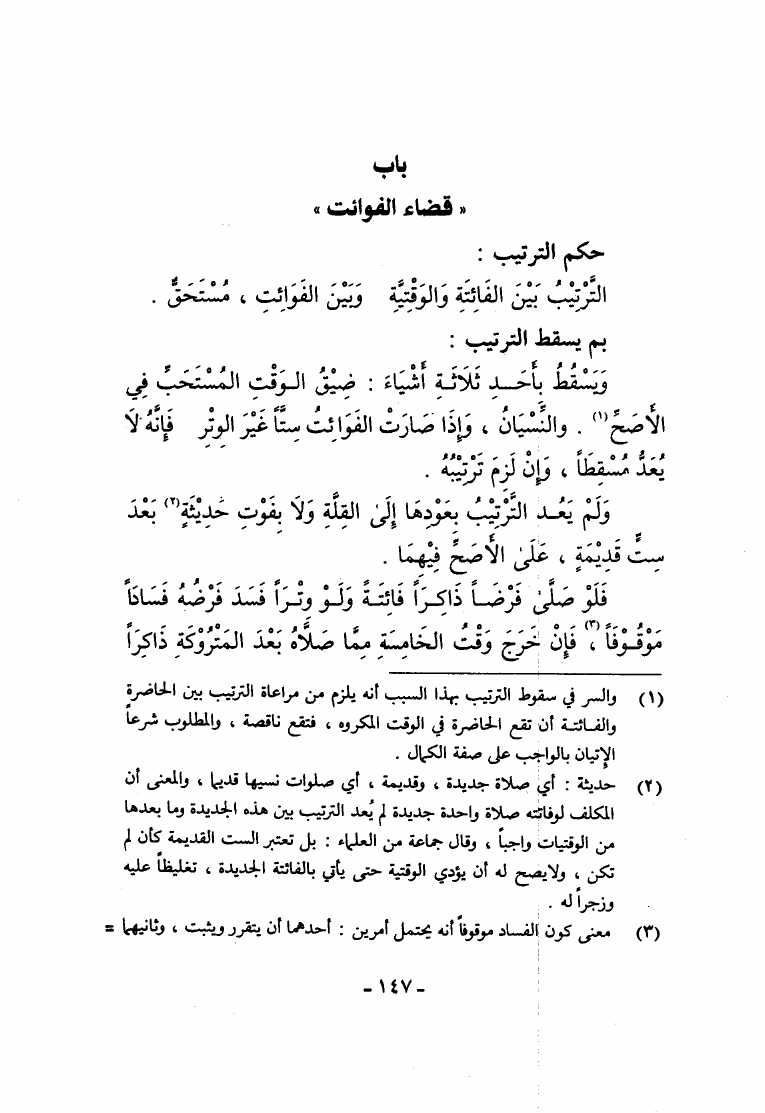 باب
« قضاء الفوائت »
حكم الترتيب :
التَّرْتِيْبُ بَيْنَ الفَائِتَةِ وَالوَقْتِيَّةِ وَبَيْنَ الفَوَائِتِ ، مُسْتَحَقٌّ .
بم يسقط الترتيب :
وَيَسْقُطُ بِأَحَـــدِ ثَلاَثَـةِ أَشْيَاءَ : ضِيْقُ الـوَقْتِ المُسْتَحَبِّ فِي
الأَصَحِّ(١) . والنِّسْيَانُ ، وَإِذَا صَارَتْ الفَوَائِتُ سِتّاً غَيْرَ الوِتْرِ فَإِنَّهُ لاَ
يُعَدُّ مُسْقِطَاً ، وَإِنْ لَزِمَ تَرْتِيْبُهُ .
وَلَمْ يَعُـدِ التَّرْتِيْبُ بِعَوْدِهَا إِلَىٰ القِلَّةِ وَلاَ بِفَوْتِ حَدِيْثَةٍ(٢) بَعْدَ
سِتٍّ قَدِيْمَةٍ ، عَلَىٰ الأَصَحِّ فِيْهِمَا .
فَلَوْ صَلَّىٰ فَرْضَـاً ذَاكِـرَاً فَائِتَـةً وَلَـوْ وِتْـرَاً فَسَدَ فَرْضُهُ فَسَادَاً
مَوْقُـوْفَاً(٣) ، فَإِنْ خَرَجَ وَقْتُ الخَامِسَةِ مِمَّا صَلاَّهُ بَعْدَ المَتْرُوْكَةِ ذَاكِرَاً
(١) والسر في سقوط الترتيب بهذا السبب أنه يلزم من مراعاة الترتيب بين الحاضرة
والفـائتـة أن تقع الحاضرة في الوقت المكروه ، فتقع ناقصة ، والمطلوب شرعاً
الإتيان بالواجب على صفة الكمال .
(٢) حديثة : أي صلاة جديدة ، وقديمة ، أي صلوات نسيها قديما ، والمعنى أن
المكلف لوفاتته صلاة واحدة جديدة لم يُعد الترتيب بين هذه الجديدة وما بعدها
من الوقتيات واجباً ، وقال جماعة من العلماء : بل تعتبر الست القديمة كأن لم
تكن ، ولايصح له أن يؤدي الوقتية حتى يأتي بالفائتة الجديدة ، تغليظاً عليه
وزجراً له .
(٣) معنى كون الفساد موقوفاً أنه يحتمل أمرين : أحدهما أن يتقرر ويثبت ، وثانيهما =
- ١٤٧ -